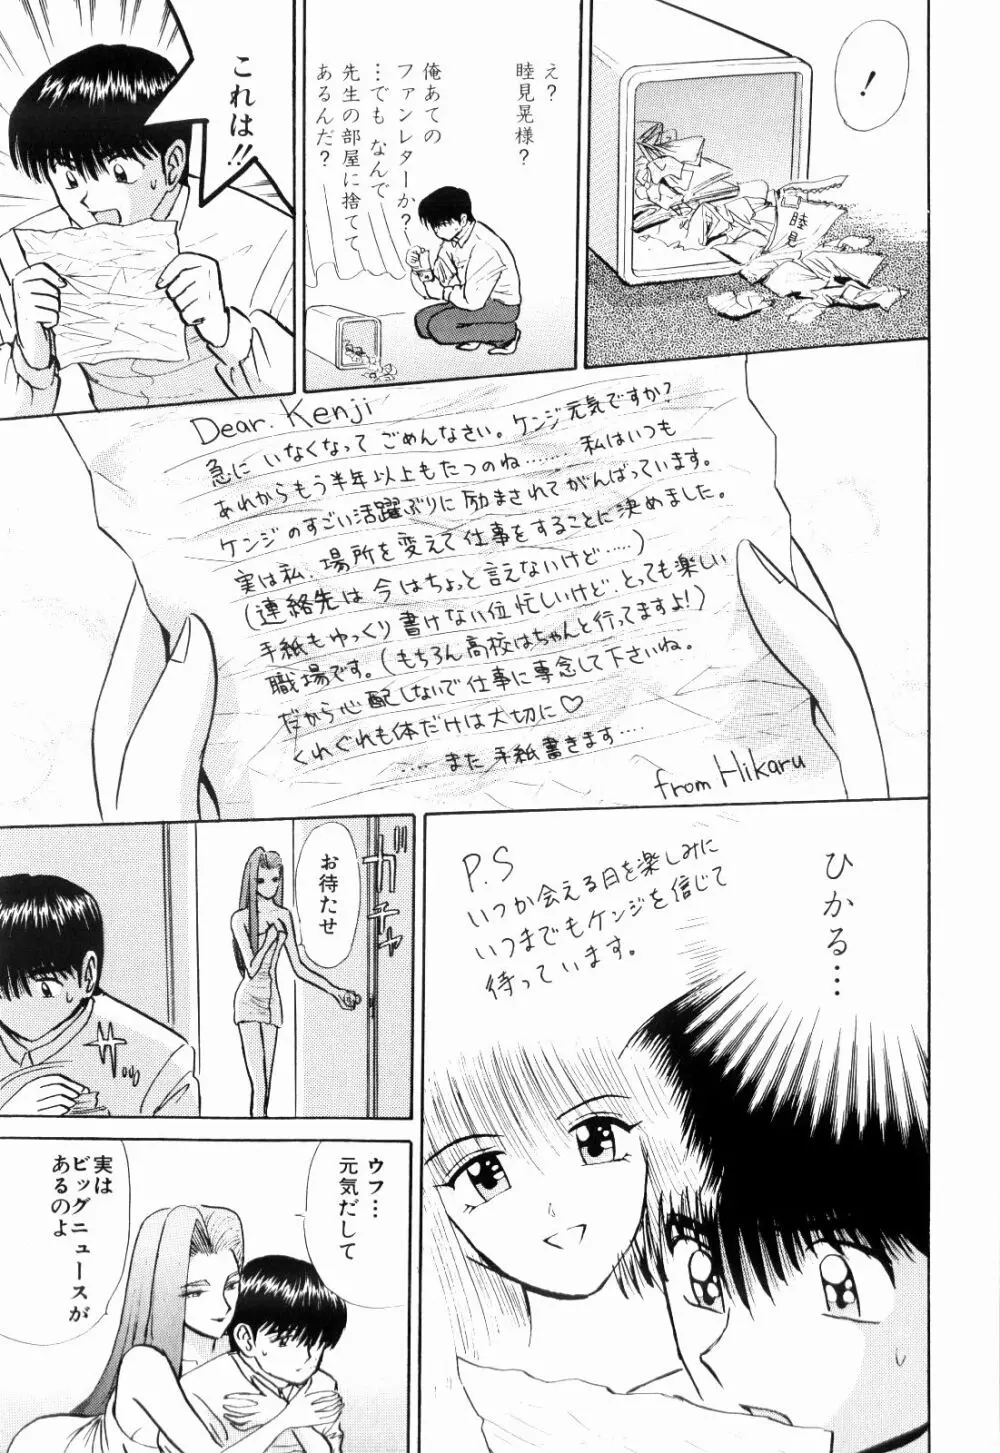 !
睦見
え?
睦見晃様?
俺あての
ファンレターか?
…でも なんで
先生の部屋に捨てて
あるんだ?
これは!!
Dear. Kenji
急に いなくなって ごめんなさい。ケンジ元気ですか?
あれからもう半年以上もたつのね……… 私はいつも
ケンジのすごい活躍ぶりに励まされてがんばっています。
実は私、場所を変えて仕事をすることに決めました。
(連絡先は今はちょっと言えないけど……)
手紙もゆっくり書けない位忙しいけど、とっても楽しい
職場です。(もちろん高校はちゃんと行ってますよ!)
だから心配しないで仕事に専念して下さいね。
くれぐれも体だけは大切に♡
…… また手紙書きます……
from Hikaru
ひかる…
P.S
いつか会える日を楽しみに
いつまでもケンジを信じて
待っています。
ガチャ
お待たせ
ギュ…
ウフ…
元気だして
実は
ビッグニュースが
あるのよ